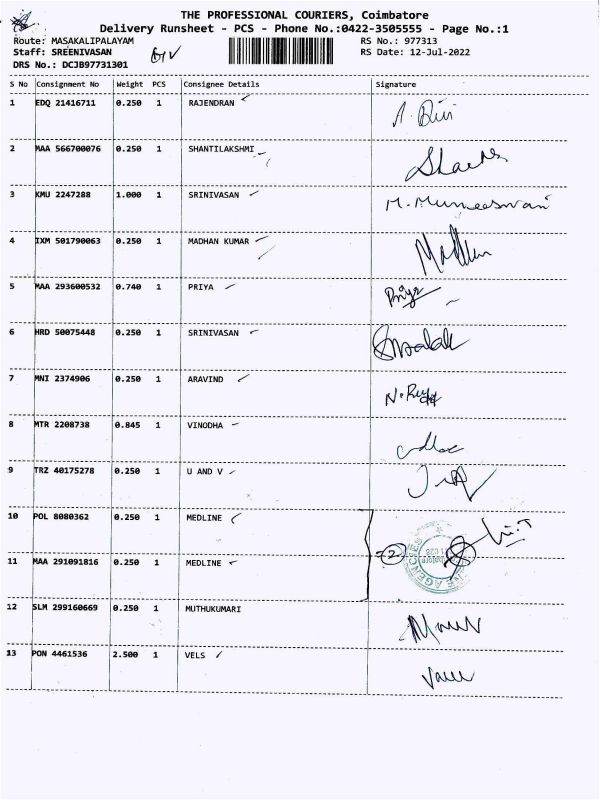 THE PROFESSIONAL COURIERS, Coimbatore
Delivery Runsheet - PCS - Phone No.:0422-3505555 - Page No.:1
Route: MASAKALIPALAYAM RS No.: 977313
Staff: SREENIVASAN RS Date: 12-Jul-2022
DRS No.: DCJB97731301
S No Consignment No Weight PCS Consignee Details Signature
1 EDQ 21416711 0.250 1 RAJENDRAN
2 MAA 566700076 0.250 1 SHANTILAKSHMI
3 KMU 2247288 1.000 1 SRINIVASAN M. Muneeswari
4 IXM 501790063 0.250 1 MADHAN KUMAR
5 MAA 293600532 0.740 1 PRIYA Priya
6 HRD 50075448 0.250 1 SRINIVASAN
7 MNI 2374906 0.250 1 ARAVIND
8 MTR 2208738 0.845 1 VINODHA
9 TRZ 40175278 0.250 1 U AND V
10 POL 8080362 0.250 1 MEDLINE
2
11 MAA 291091816 0.250 1 MEDLINE
12 SLM 299160669 0.250 1 MUTHUKUMARI
13 PON 4461536 2.500 1 VELS